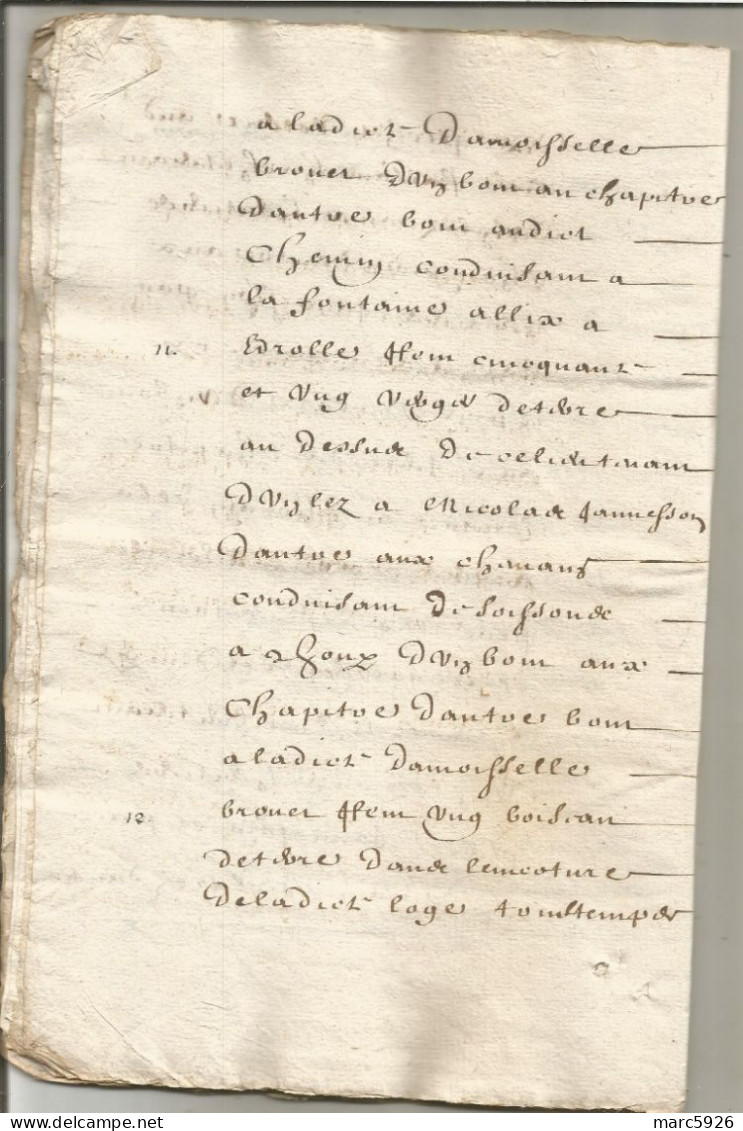 a ladict damoisselle
brouet d'ung bout au chapitre
dautre bout audict
chemin conduisant a
la fontaine allix a
11. Item cincquante
et ung verges de terre
au dessus de
d'ung lez a Nicolas Jannesson
dautre aux
conduisant de soissons
a d'ung bout aux
chapitre dautre bout
a ladict damoisselle
12 brouet Item ung boiseau
de terre dans
de ladict loge
marc5926